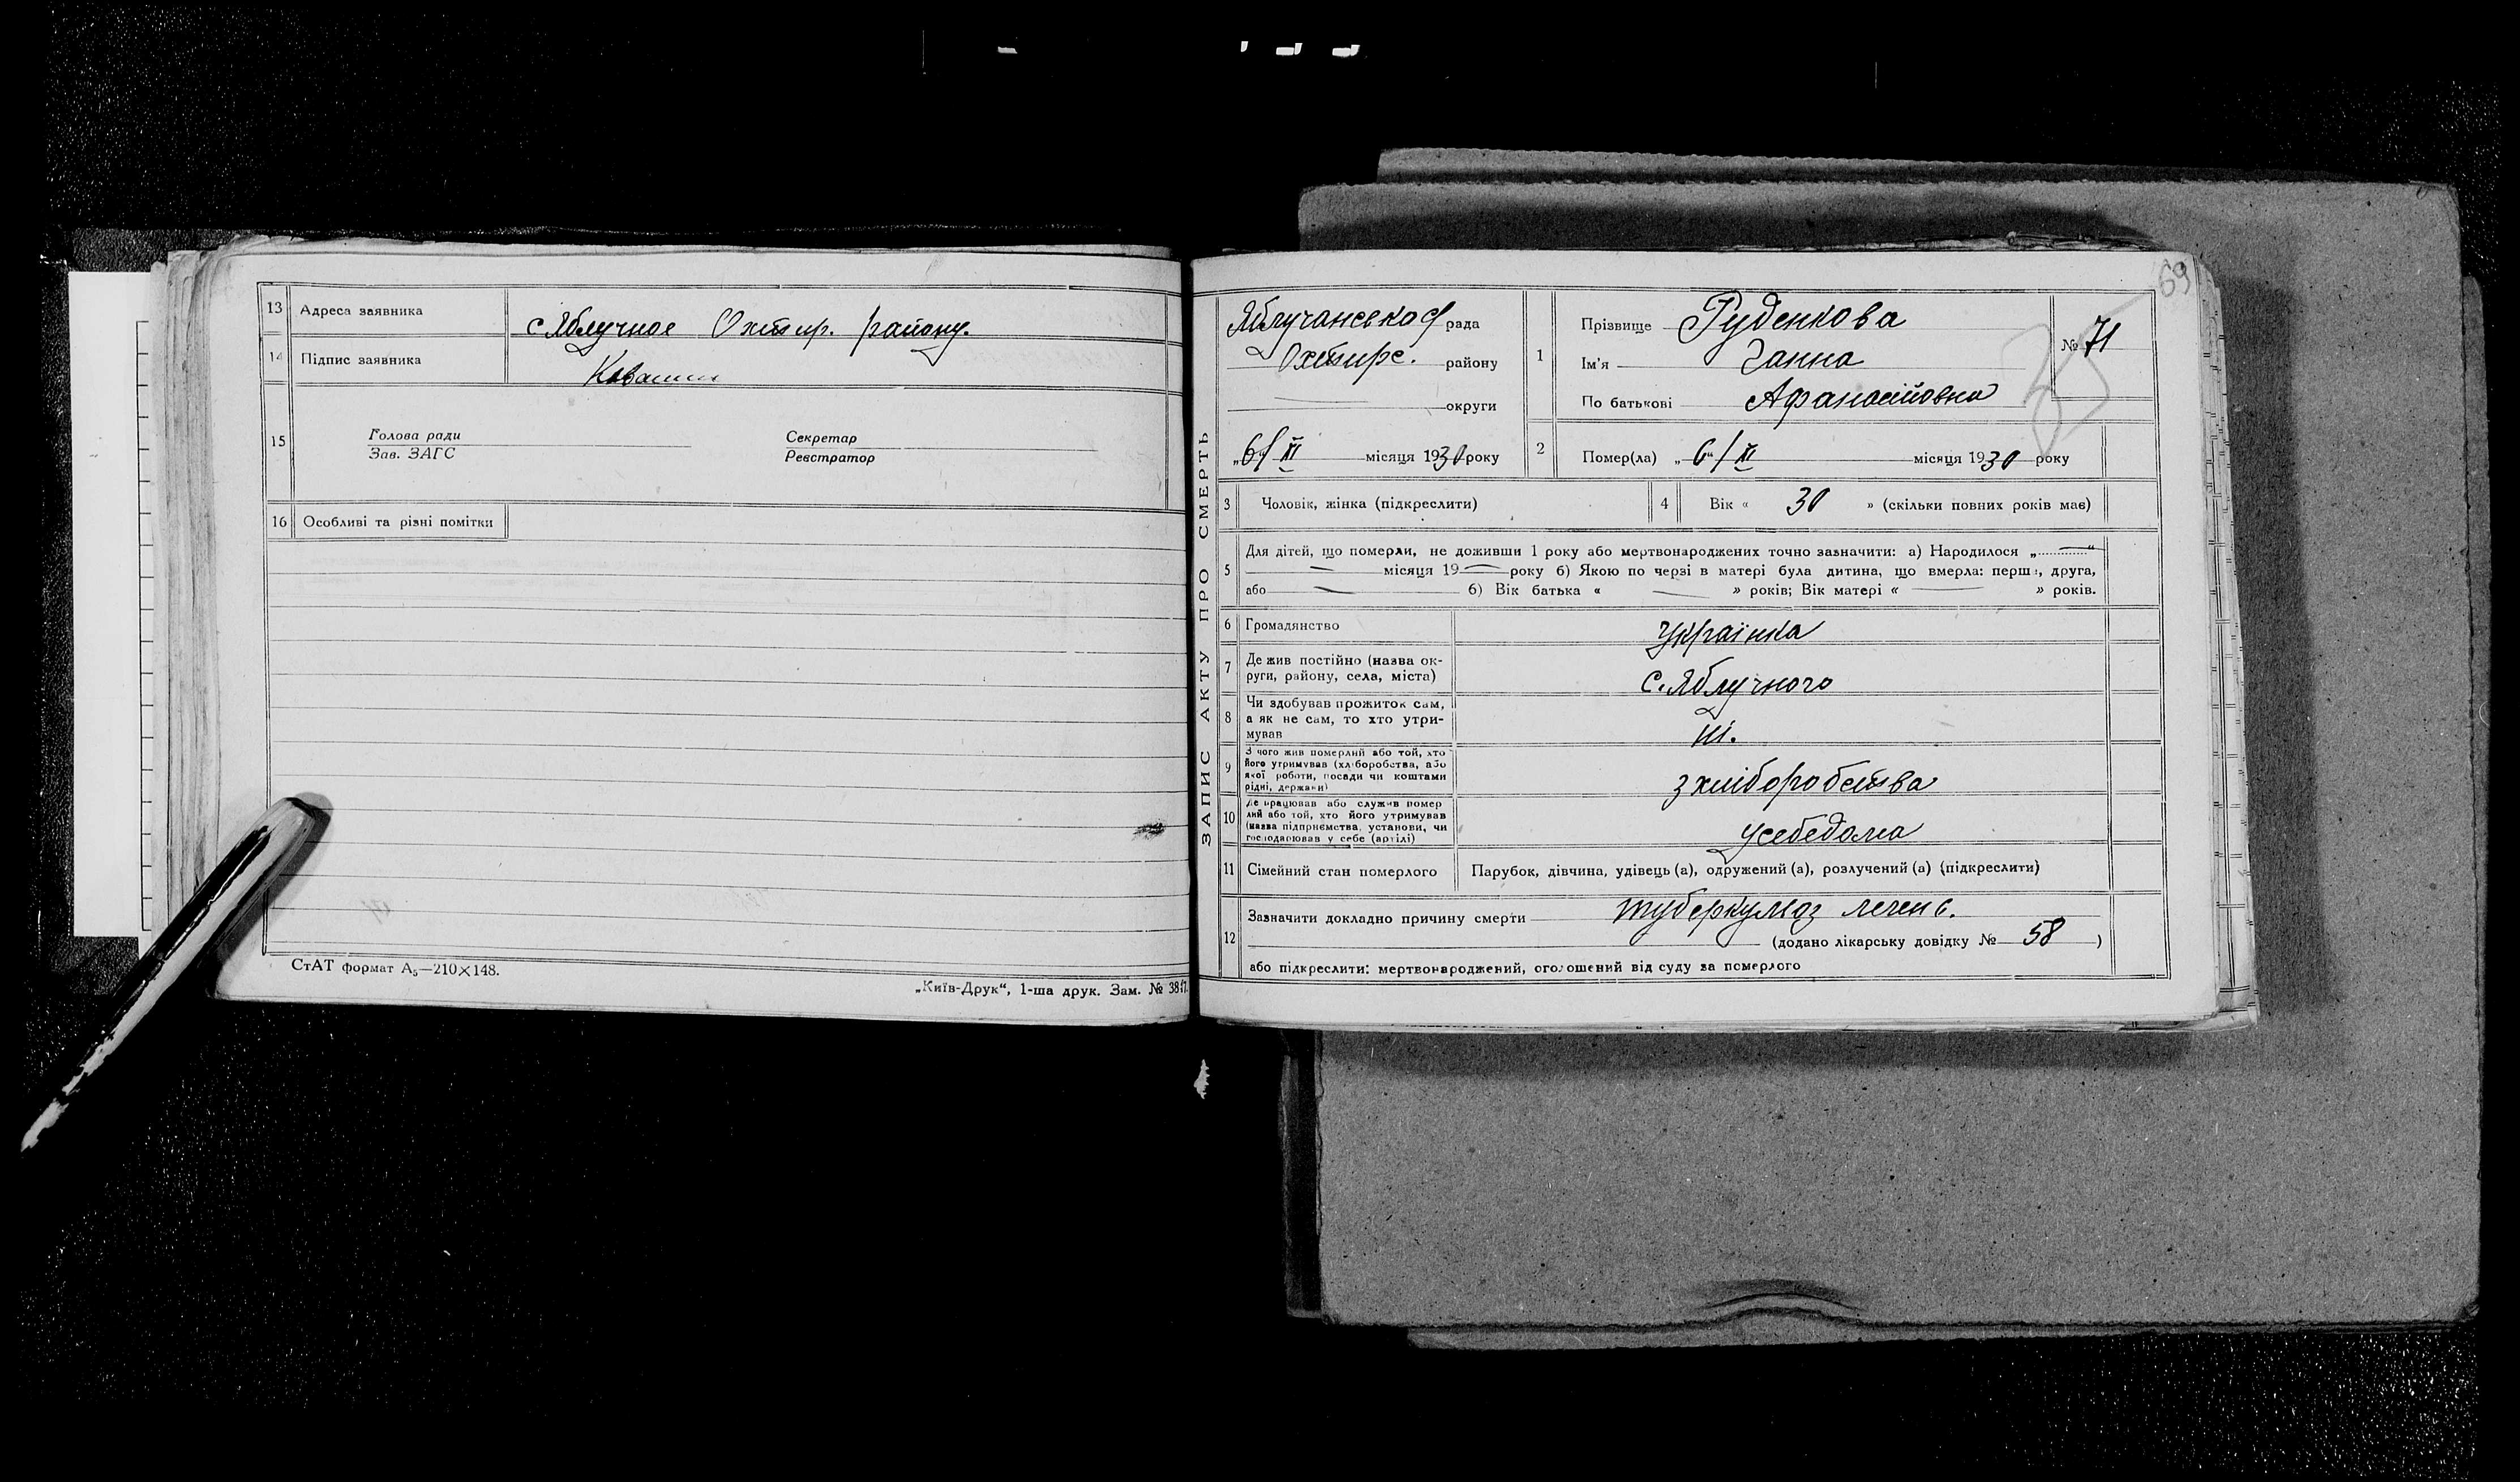 13 Адреса заявника с. Яблучное Охтир. району.
14 Підпис заявника
15 Голова ради Секретар
Зав. ЗАГС Реєстратор
16 Особливі та різні помітки
СтАТ формат А5—210×148.
„Київ-Друк“, 1-ша друк. Зам. №
69
ЗАПИС АКТУ ПРО СМЕРТЬ
Яблучанська рада
Охтирс. району
округи
„6“/XI місяця 1930 року
1 Прізвище Руденкова
Ім'я Ганна
По батькові Афанасійовна
№ 71
2 Помер(ла) „6“/XI місяця 1930 року
3 Чоловік, жінка (підкреслити)
4 Вік « 30 » (скільки повних років має)
5 Для дітей, що померли, не доживши 1 року або мертвонароджених точно зазначити: а) Народилося „ — “
— місяця 19 — року б) Якою по черзі в матері була дитина, що вмерла: перша, друга,
або — б) Вік батька « — » років; Вік матері « — » років.
6 Громадянство Українка
7 Де жив постійно (назва ок-
руги, району, села, міста) с. Яблучного
8 Чи здобував прожиток сам,
а як не сам, то хто утри-
мував ні.
9 З чого жив померлий або той, хто
його утримував (хліборобства, або
якої роботи, посади чи коштами
рідні, держави) з хліборобства
10 Де працював або служив помер
лий або той, хто його утримував
(назва підприємства, установи, чи
господарював у себе (артілі) усебе дома
11 Сімейний стан померлого Парубок, дівчина, удівець (а), одружений (а), розлучений (а) (підкреслити)
12 Зазначити докладно причину смерти туберкульоз легень.
(додано лікарську довідку № 58 )
або підкреслити: мертвонароджений, оголошений від суду за померлого